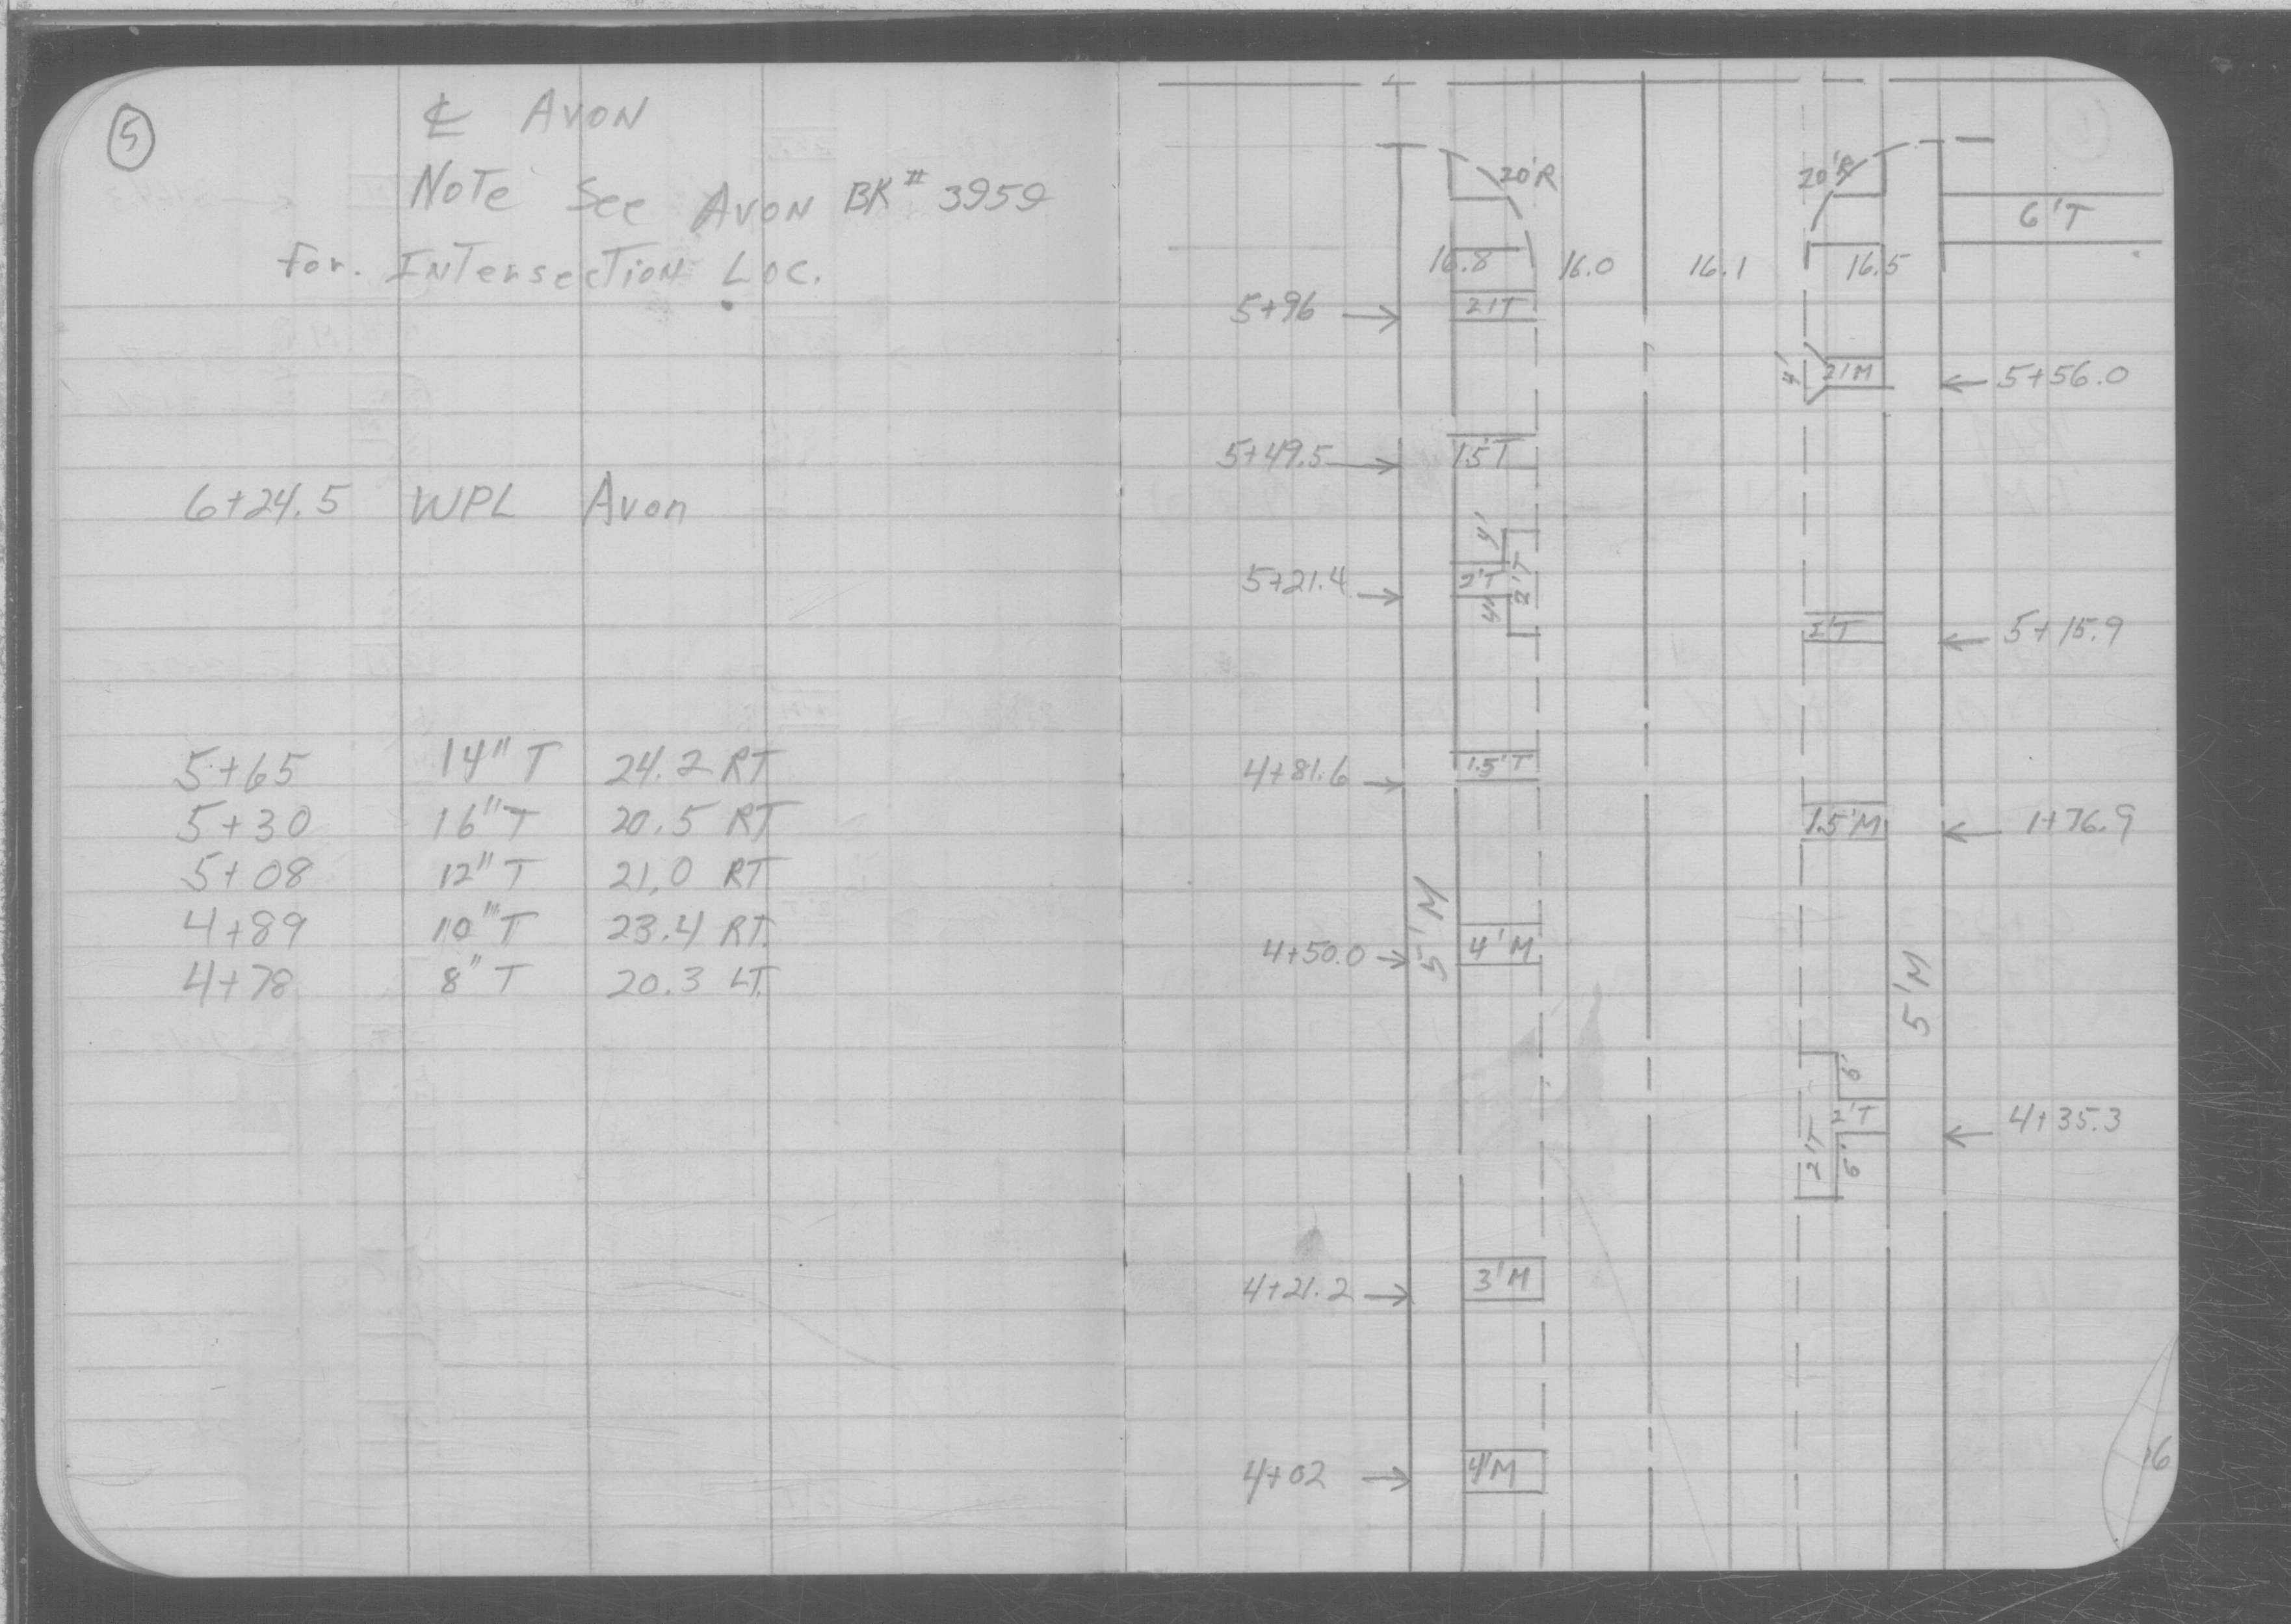 5
℄ AVON
NOTE See AVON BK # 3959
for. INTersecTION LOC.
6+24.5 WPL Avon
5+65 14" T 24.2 RT
5+30 16" T 20.5 RT
5+08 12" T 21,0 RT
4+89 10" T 23.4 RT.
4+78 8" T 20.3 LT.
20'R 20'R
6'T
16.8 16.0 16.1 16.5
5+96 → 21T
4' 21M ← 5+56.0
5+49.5 → 1.5'T
4'
5+21.4 → 2'T 2'T
4'
2'T ← 5+15.9
4+81.6 → 1.5'T
1.5'M ← 1+76.9
5'M
4+50.0 → 4'M
5'M
6'
2'T ← 4+35.3
2'T 6'
4+21.2 → 3'M
4+02 → 4'M
6